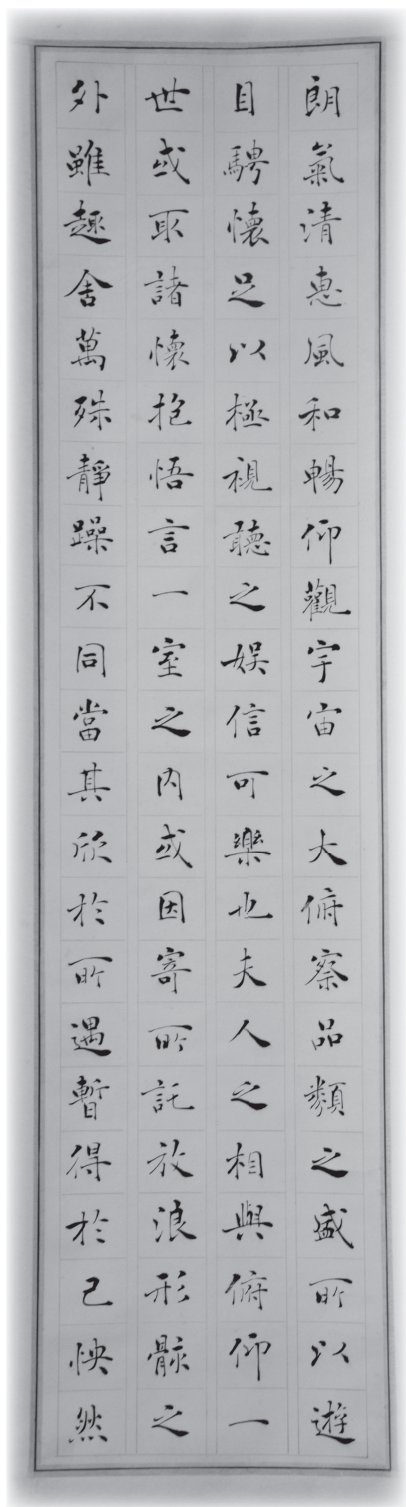 朗氣清惠風和暢仰觀宇宙之大俯察品類之盛所以遊
目騁懷足以極視聽之娛信可樂也夫人之相與俯仰一
世或取諸懷抱悟言一室之内或因寄所託放浪形骸之
外雖趣舍萬殊靜躁不同當其欣於所遇暫得於己怏然